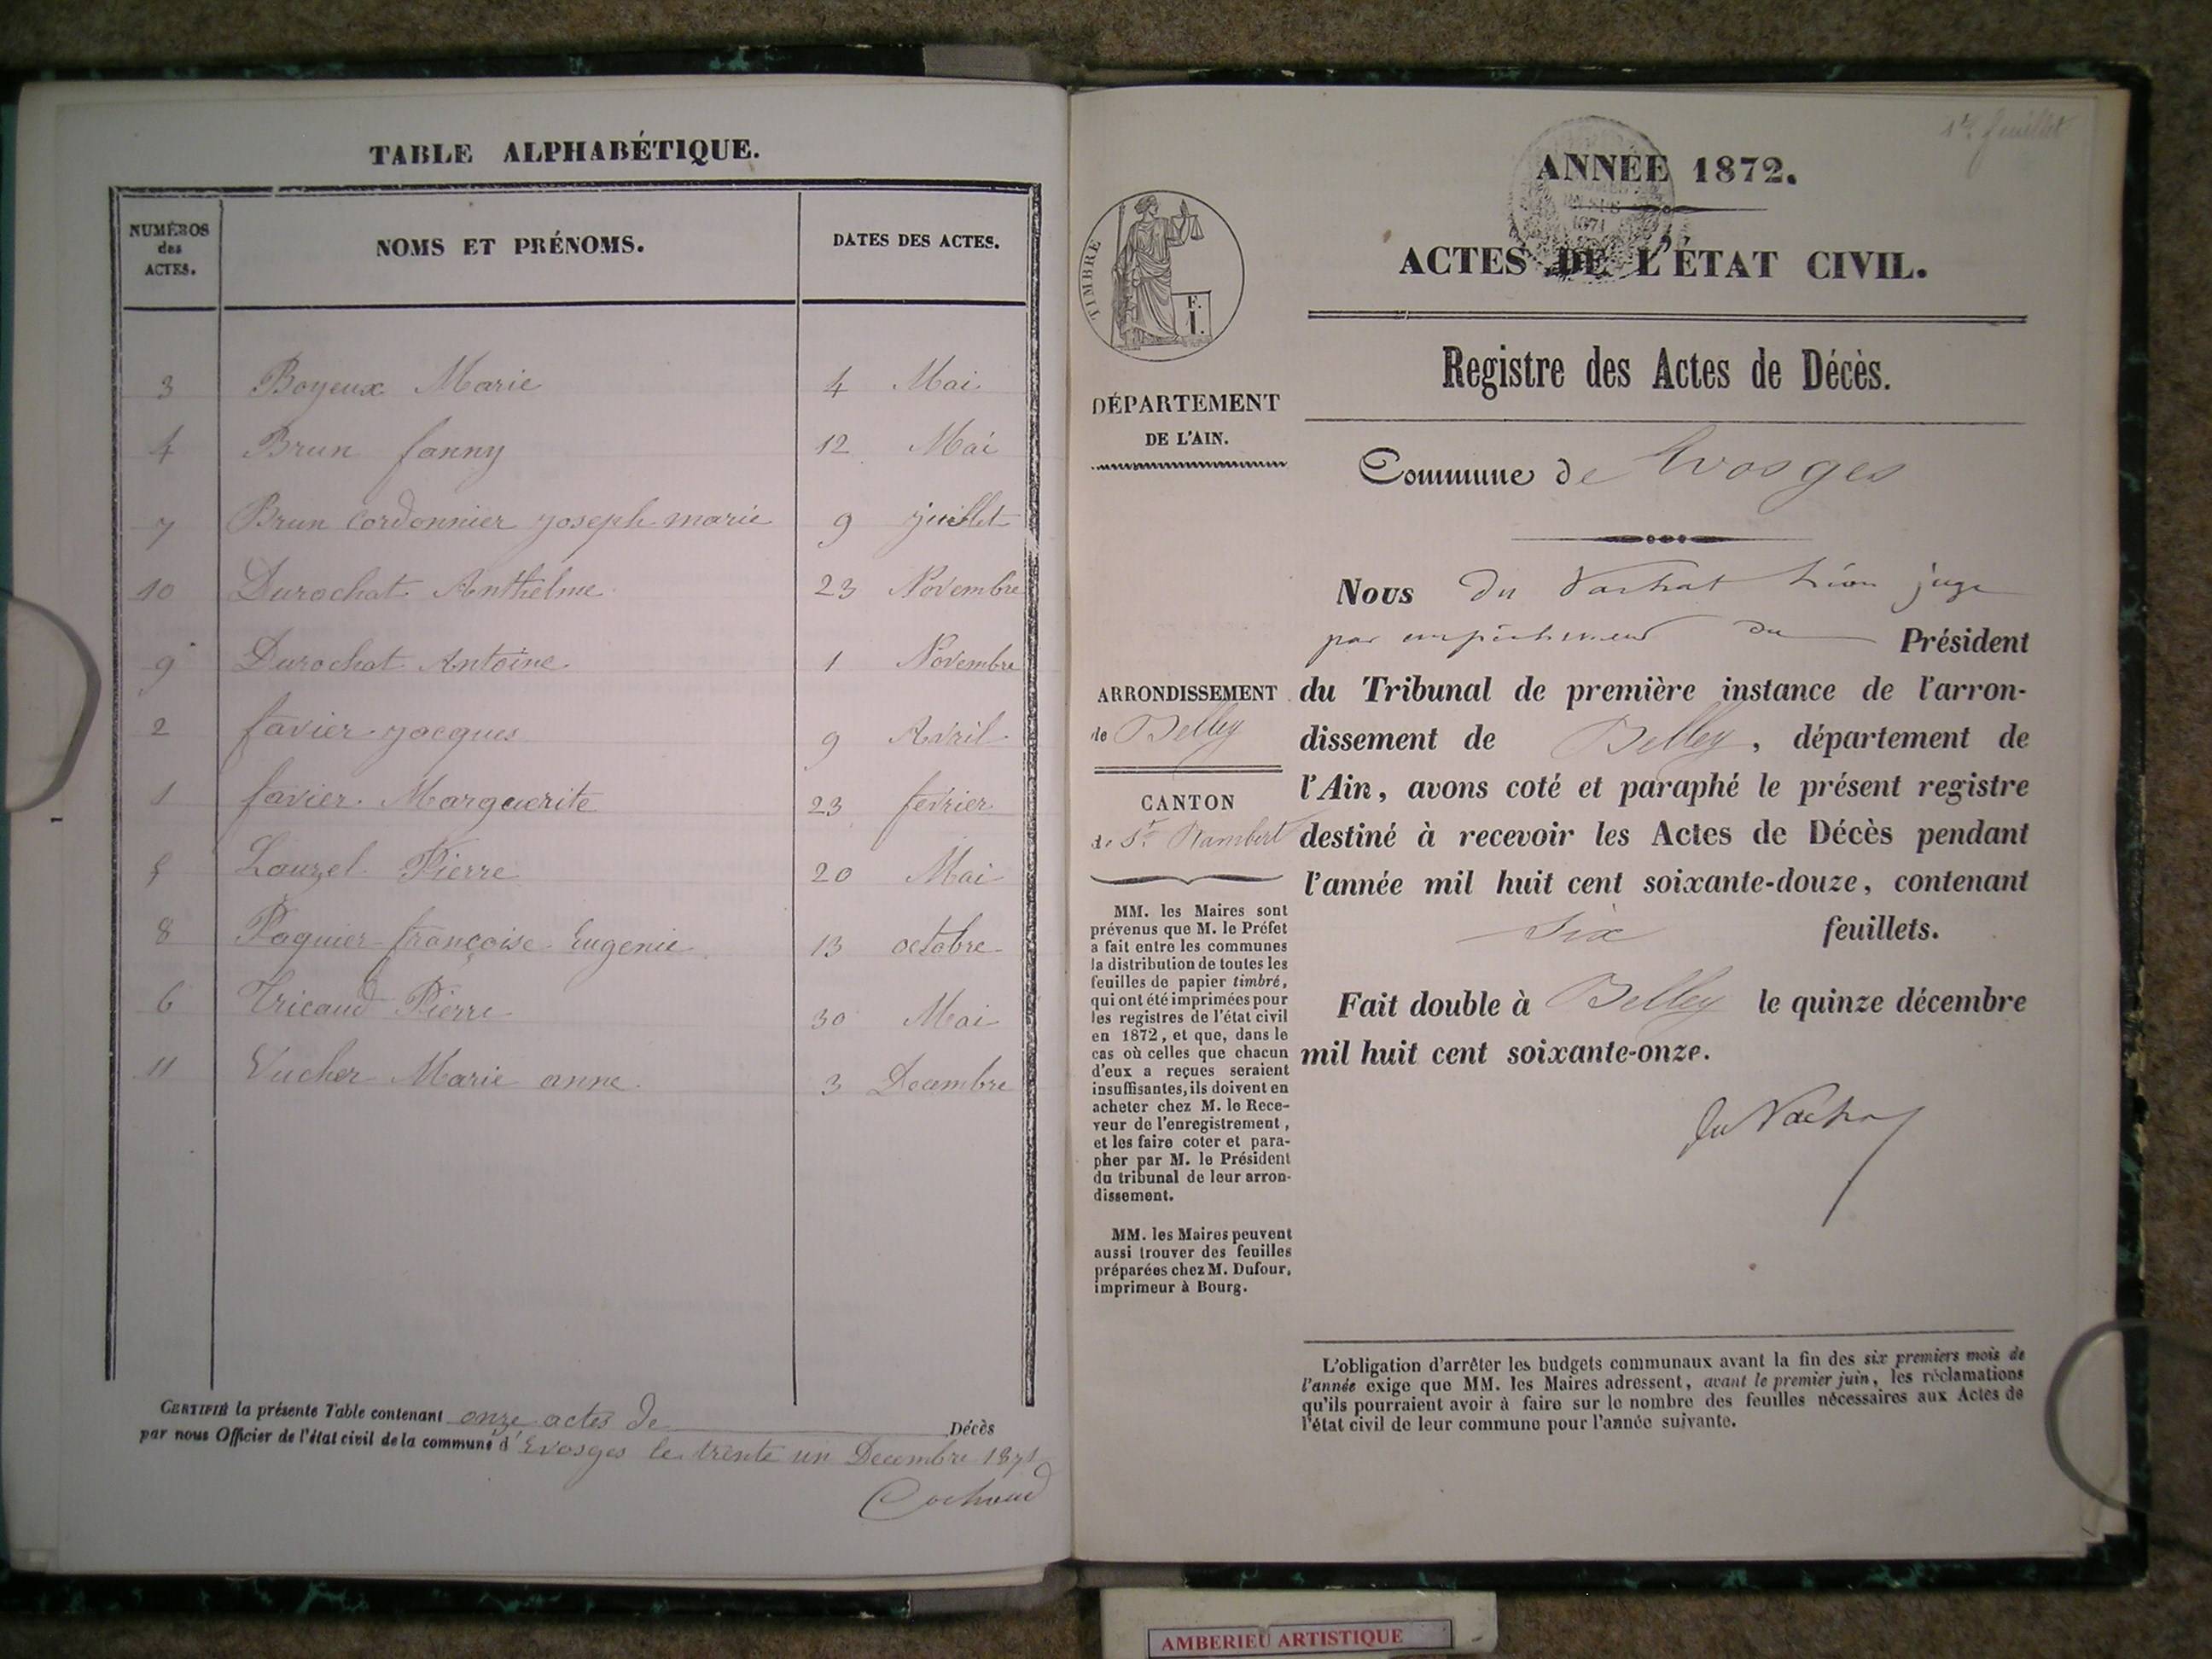 TABLE ALPHABÉTIQUE.
NUMÉROS
des
ACTES.
NOMS ET PRÉNOMS.
DATES DES ACTES.
3 Boyeux Marie 4 Mai
4 Brun fanny 12 Mai
7 Brun Cordonnier joseph marie 9 juillet
10 Durochat Anthelme 23 Novembre
9 Durochat Antoine 1 Novembre
2 favier jacques 9 Avril
1 favier Marguerite 23 fevrier
5 Louzel Pierre 20 Mai
8 Paquier françoise Eugenie 13 octobre
6 Tricaud Pierre 30 Mai
11 Vucher Marie anne 3 Decembre
CERTIFIÉ la présente Table contenant onze actes de Décès
par nous Officier de l'état civil de la commune d'Evosges le trente un Decembre 1871
Cochoud
1er feuillet
ANNÉE 1872.
1871
ACTES DE L'ÉTAT CIVIL.
TIMBRE
F.
I.
Registre des Actes de Décès.
DÉPARTEMENT
DE L'AIN.
Commune de Evosges
ARRONDISSEMENT
de Belley
CANTON
de St. Rambert
MM. les Maires sont
prévenus que M. le Préfet
a fait entre les communes
la distribution de toutes les
feuilles de papier timbré,
qui ont été imprimées pour
les registres de l'état civil
en 1872, et que, dans le
cas où celles que chacun
d'eux a reçues seraient
insuffisantes, ils doivent en
acheter chez M. le Rece-
veur de l'enregistrement,
et les faire coter et para-
pher par M. le Président
du tribunal de leur arron-
dissement.
MM. les Maires peuvent
aussi trouver des feuilles
préparées chez M. Dufour,
imprimeur à Bourg.
Nous du Vachat Léon juge
par empêchement du Président
du Tribunal de première instance de l'arron-
dissement de Belley, département de
l'Ain, avons coté et paraphé le présent registre
destiné à recevoir les Actes de Décès pendant
l'année mil huit cent soixante-douze, contenant
six feuillets.
Fait double à Belley le quinze décembre
mil huit cent soixante-onze.
du Vachat
L'obligation d'arrêter les budgets communaux avant la fin des six premiers mois de
l'année exige que MM. les Maires adressent, avant le premier juin, les réclamations
qu'ils pourraient avoir à faire sur le nombre des feuilles nécessaires aux Actes de
l'état civil de leur commune pour l'année suivante.
AMBERIEU ARTISTIQUE